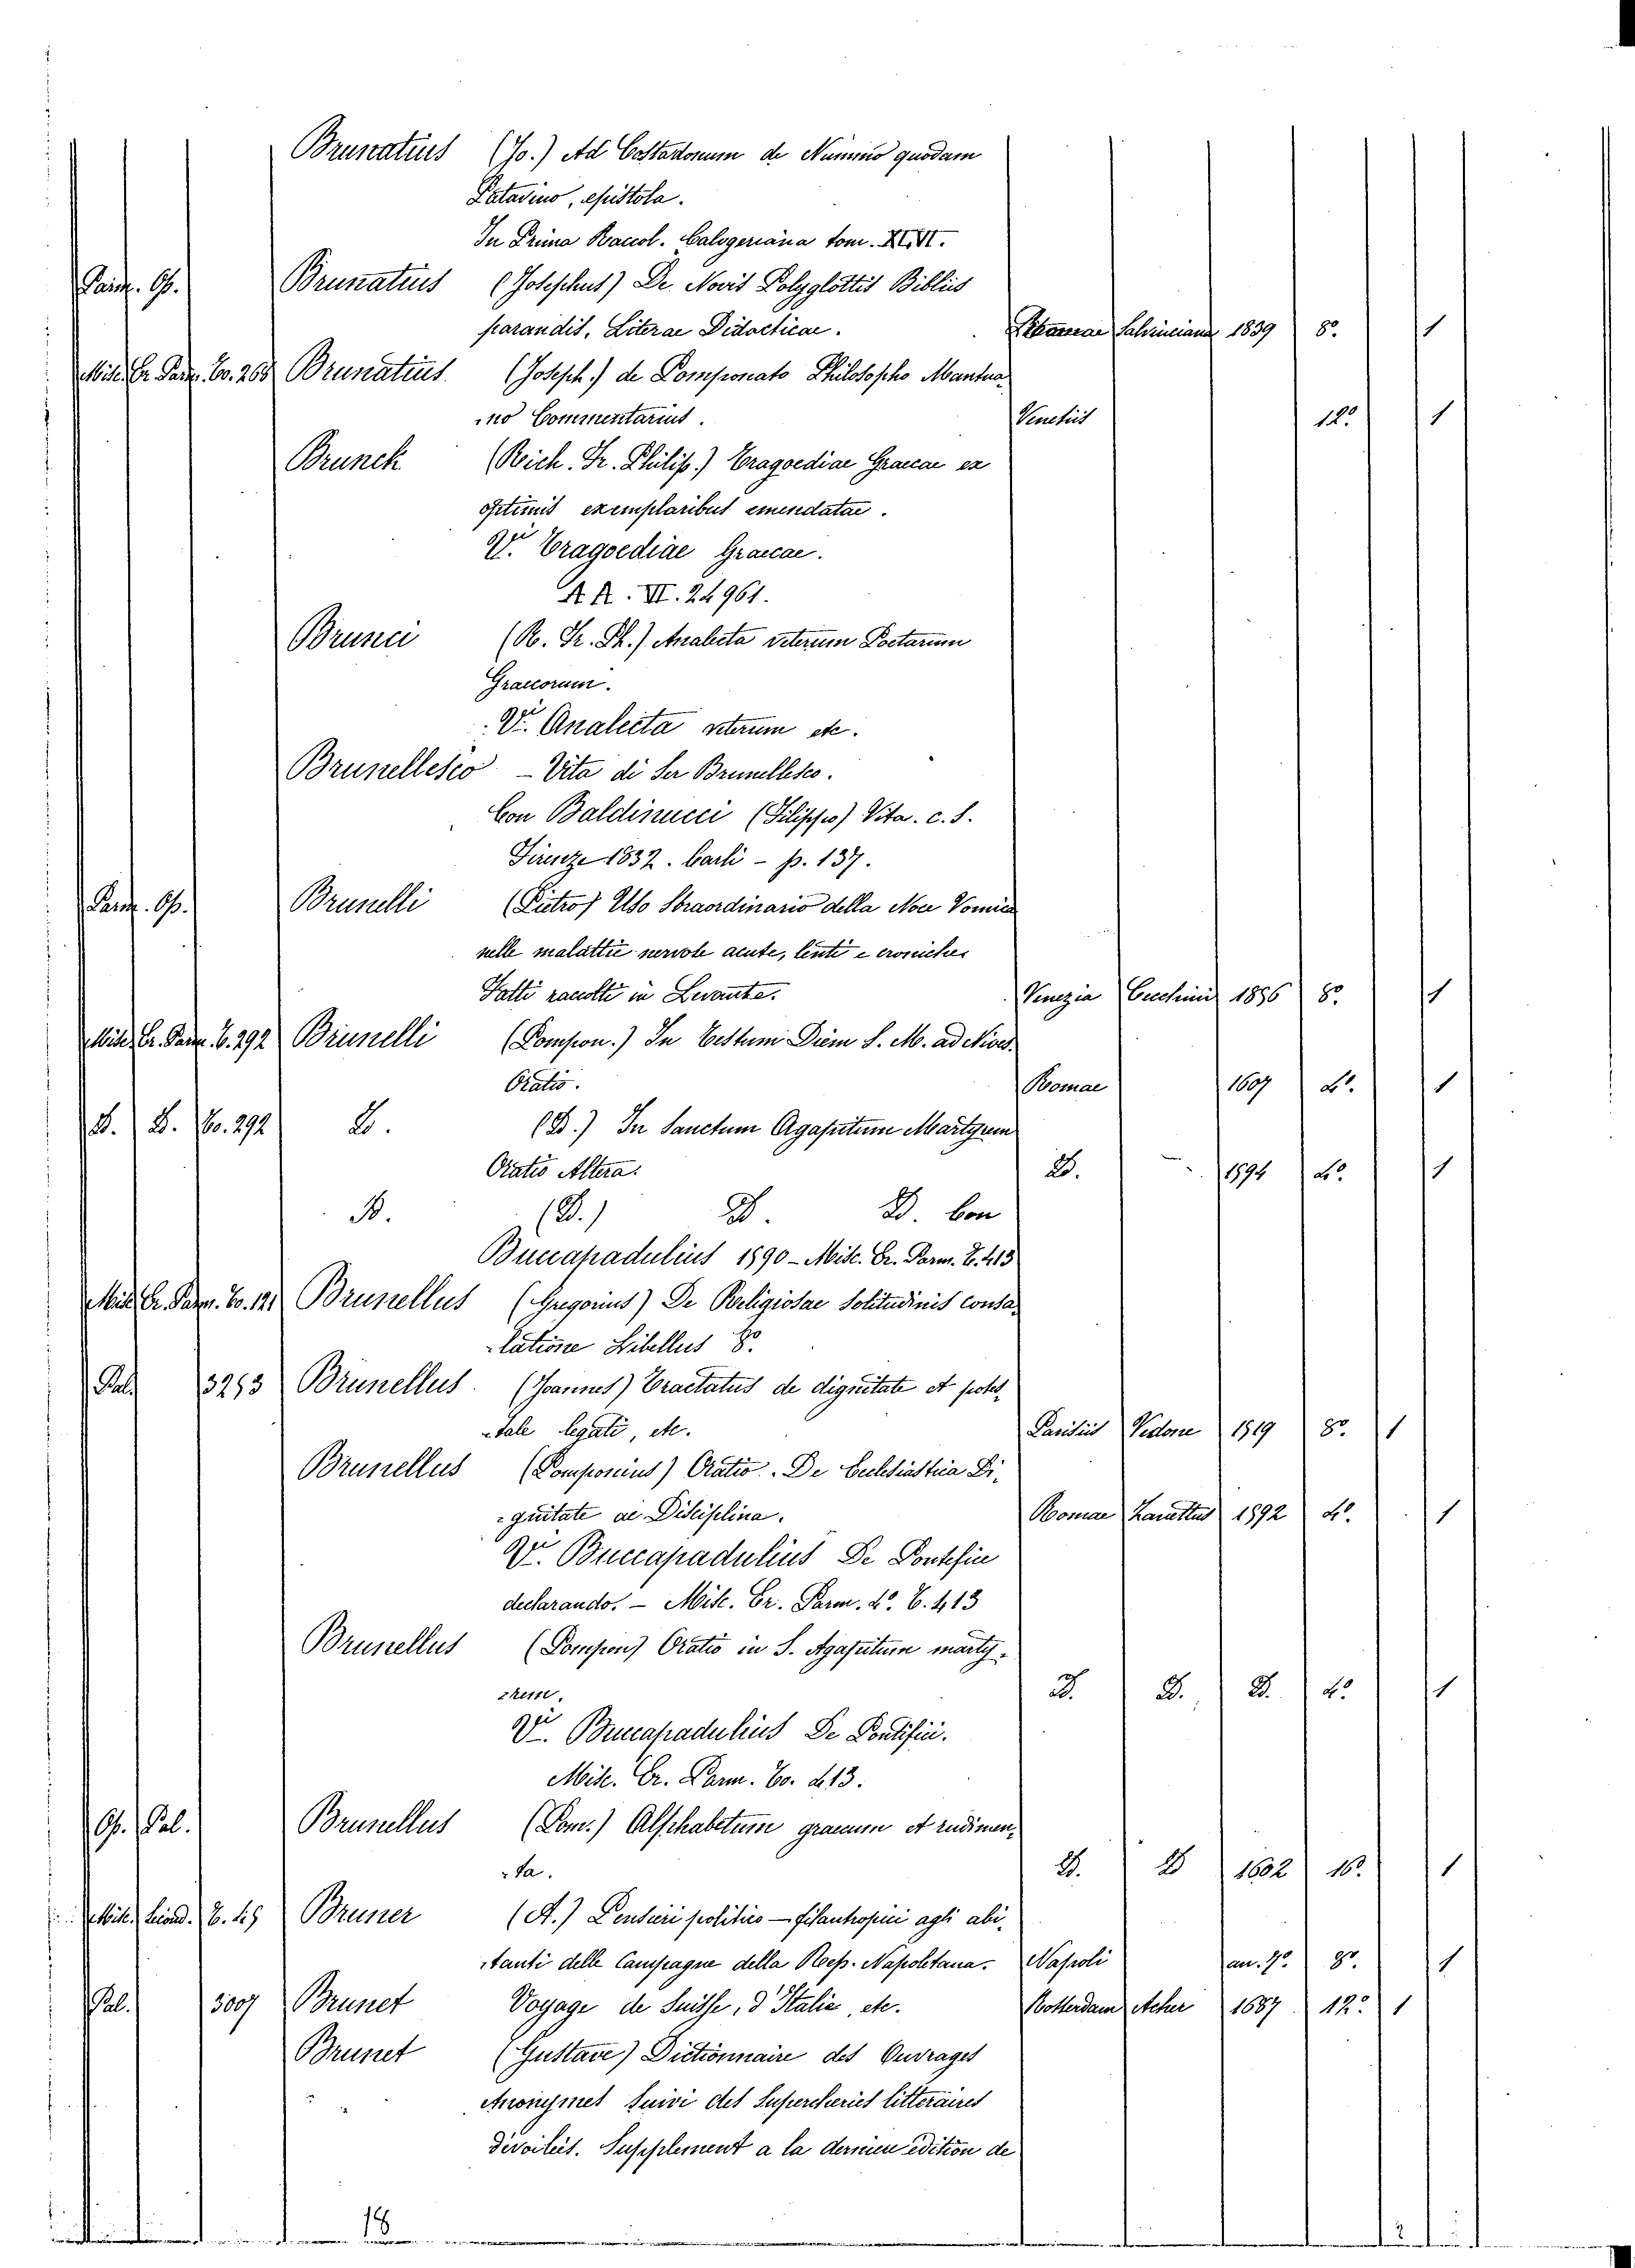 Brunatius (Jo.) Ad Costadonum de Nummo quodam
Patavino, epistola.
In Prima Raccol. Calogeriana tom. XLVI.
Parm. Op. Brunatius (Josephus) De Novis Polyglottis Bibliis
parandis, Literae Didacticae. Salviniana 1839 8º 1
Misc. Er. Parm. To. 268 Brunatius (Joseph.) de Pomponato Philosopho Mantua-
no Commentarius. Venetiis 12º 1
Brunck (Rich. Fr. Philip.) Tragoediae Graecae ex
optimis exemplaribus emendatae.
Vi. Tragoediae Graecae.
A A. VI. 24961.
Brunci (R. Fr. Ph.) Analecta veterum Poetarum
Graecorum.
Vi. Analecta veterum etc.
Brunellesco - Vita di Ser Brunellesco.
Con Baldinucci (Filippo) Vita. c. s.
Firenze 1832. Carli - p. 137.
Parm. Op. Brunelli (Pietro) Uso Straordinario della Noce Vomica
nelle malattie nervose acute, lente e croniche
Fatti raccolti in Levante. Venezia Cecchini 1856 8º 1
Misc. Er. Parm. T. 292 Brunelli (Pompon.) In Festum Diem S. M. ad Nives
Oratio. Romae 1607 4º 1
D. D. To. 292 D. (D.) In Sanctum Agapitum Martyrem
Oratio Altera. D. 1594 4º 1
D. (D.) D. D. Con
Buccapadulius 1590 - Misc. Er. Parm. T. 413
Misc. Er. Parm. To. 121 Brunellus (Gregorius) De Religiosae Solitudinis conso-
latione Libellus 8º
Pal. 3253 Brunellus (Joannes) Tractatus de dignitate et potes-
tate legati, etc. Parisiis Vedone 1519 8º 1
Brunellus (Pomponius) Oratio. De Ecclesiastica Di-
gnitate ac Disciplina. Romae Zanettus 1592 4º 1
Vi. Buccapadulius De Pontifice
declarando. - Misc. Er. Parm. 4º T. 413
Brunellus (Pompon) Oratio in S. Agapitum marty-
rem. D. D. D. 4º 1
Vi. Buccapadulius De Pontifici.
Misc. Er. Parm. To. 413.
Op. Pal. Brunellus (Pom.) Alphabetum graecum et rudimen-
ta. D. D 1602 16º 1
Misc. T. 45 Bruner (A.) Pensieri politico - filantropici agli abi-
tanti delle Campagne della Rep. Napoletana. Napoli an. 7º 8º 1
Pal. 3007 Brunet Voyage de Suisse, d'Italie, etc. Rotterdam Acher 1687 12º 1
Brunet (Gustave) Dictionnaire des Ouvrages
Anonymes suivi des Supercheries litteraires
devoileés. Supplement a la derniere edition de
18